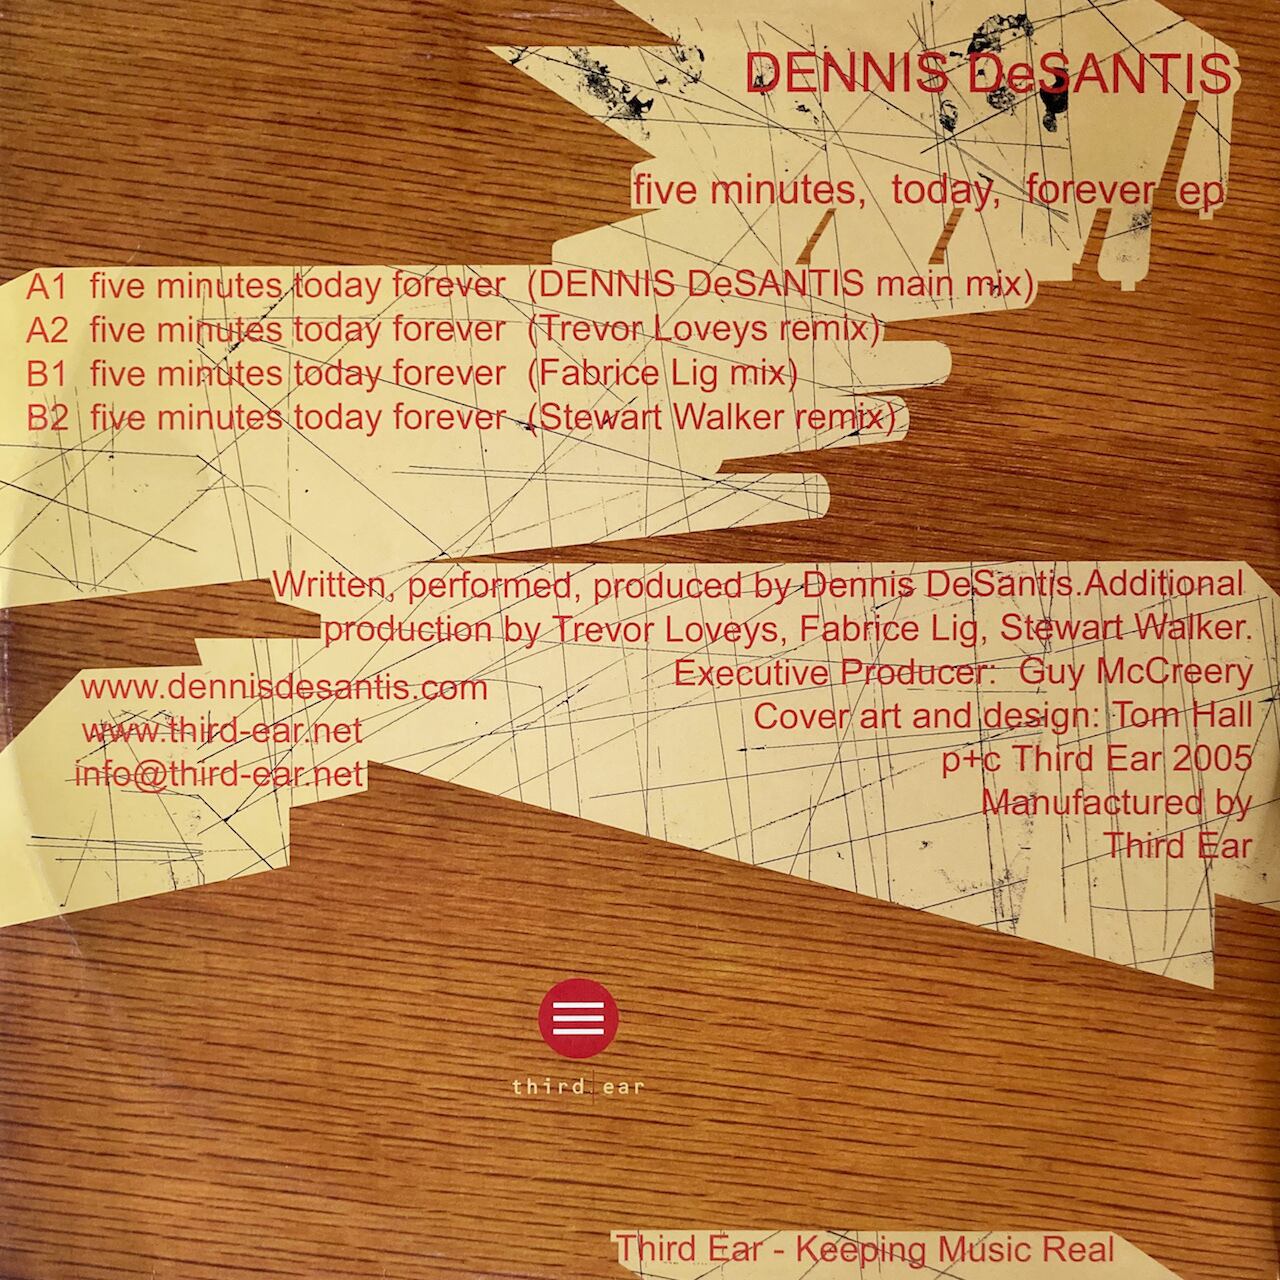 DENNIS DeSANTIS
five minutes, today, forever ep
A1 five minutes today forever (DENNIS DeSANTIS main mix)
A2 five minutes today forever (Trevor Loveys remix)
B1 five minutes today forever (Fabrice Lig mix)
B2 five minutes today forever (Stewart Walker remix)
Written, performed, produced by Dennis DeSantis.Additional
production by Trevor Loveys, Fabrice Lig, Stewart Walker.
Executive Producer: Guy McCreery
Cover art and design: Tom Hall
p+c Third Ear 2005
Manufactured by
Third Ear
www.dennisdesantis.com
www.third-ear.net
info@third-ear.net
third ear
Third Ear - Keeping Music Real